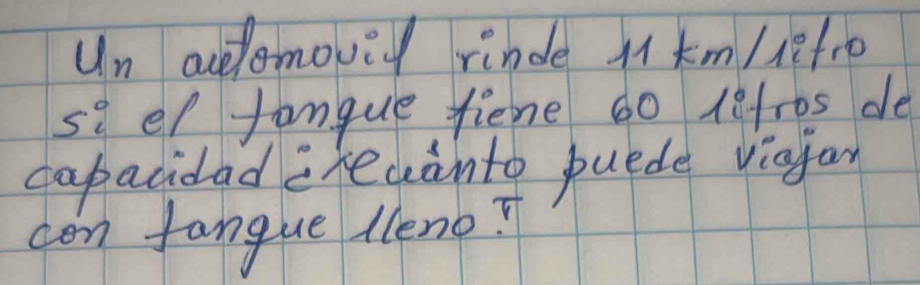 Un automovil rinde 11 km/litro
si el tanque tiene 60 litros de
capacidad ¿cuánto puede viajar
con tanque lleno?